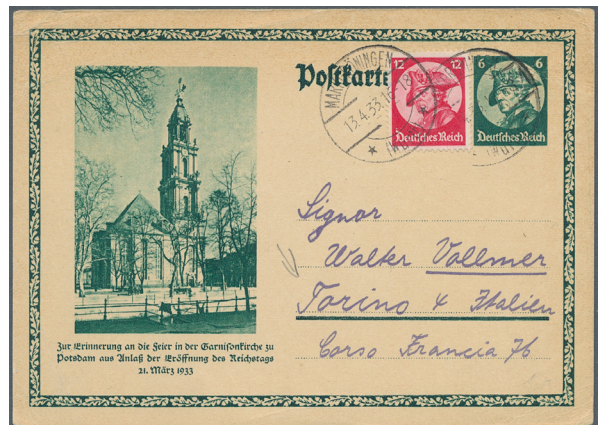 Postkarte
12 12
Deutsches Reich
6 6
Deutsches Reich
13.4.33.
Signor
Walter Vollmer
Torino 4 Italien
Corso Francia 76
Zur Erinnerung an die Feier in der Garnisonkirche zu
Potsdam aus Anlaß der Eröffnung des Reichstags
21. März 1933